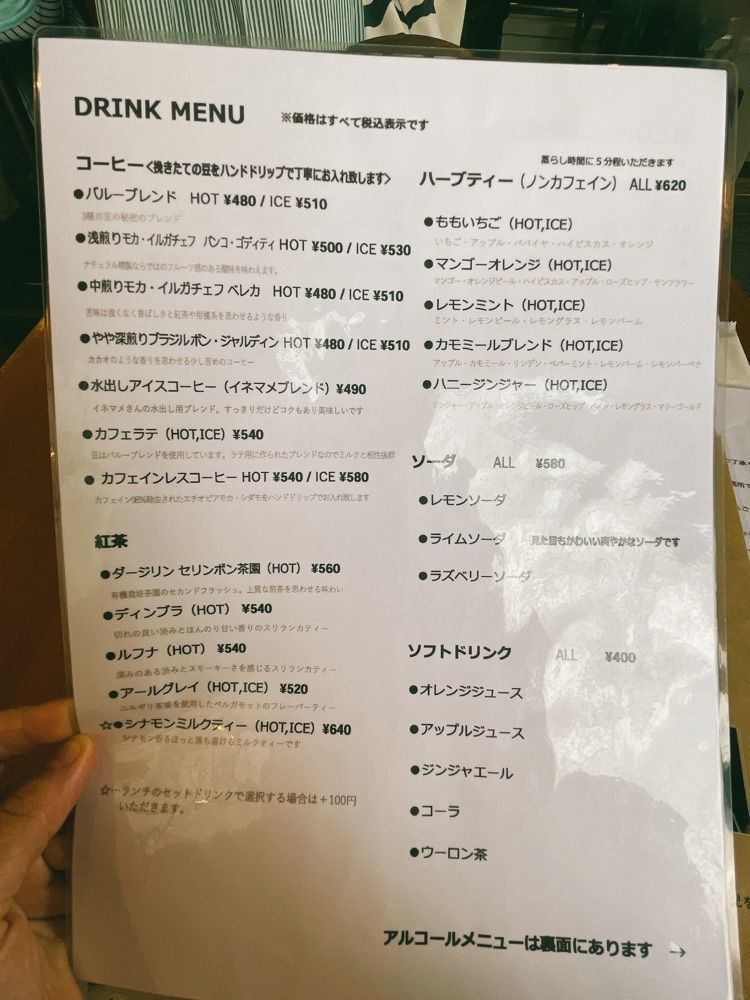 DRINK MENU
※価格はすべて税込表示です
コーヒー<挽きたての豆をハンドドリップで丁寧にお入れ致します>
●バルーブレンド HOT ¥480 / ICE ¥510
3種の豆の秘密のブレンド
●浅煎りモカ・イルガチェフ バンコ・ゴディティ HOT ¥500 / ICE ¥530
ナチュラル精製ならではのフルーツ感のある酸味を味わえます。
●中煎りモカ・イルガチェフ ベレカ HOT ¥480 / ICE ¥510
苦味は強くなく香ばしさと紅茶や柑橘系を思わせるような香り
●やや深煎りブラジルボン・ジャルディン HOT ¥480 / ICE ¥510
カカオのような香りを思わせる少し苦めのコーヒー
●水出しアイスコーヒー（イネマメブレンド）¥490
イネマメさんの水出し用ブレンド。すっきりだけどコクもあり美味しいです
●カフェラテ（HOT,ICE）¥540
豆はバルーブレンドを使用しています。ラテ用に作られたブレンドなのでミルクと相性抜群
● カフェインレスコーヒー HOT ¥540 / ICE ¥580
カフェイン98%除去されたエチオピアモカ・シダモをハンドドリップでお入れ致します
紅茶
●ダージリン セリンボン茶園（HOT）¥560
有機栽培茶園のセカンドフラッシュ。上質な煎茶を思わせる味わい
●ディンブラ（HOT）¥540
切れの良い渋みとほんのり甘い香りのスリランカティー
●ルフナ（HOT）¥540
深みのある渋みとスモーキーさを感じるスリランカティー
●アールグレイ（HOT,ICE）¥520
ニルギリ茶葉を使用したベルガモットのフレーバーティー
☆●シナモンミルクティー（HOT,ICE）¥640
シナモン香るほっと落ち着けるミルクティーです
☆…ランチのセットドリンクで選択する場合は＋100円
いただきます。
蒸らし時間に５分程いただきます
ハーブティー（ノンカフェイン） ALL ¥620
●ももいちご（HOT,ICE）
いちご・アップル・パパイヤ・ハイビスカス・オレンジ
●マンゴーオレンジ（HOT,ICE）
マンゴー・オレンジピール・ハイビスカス・アップル・ローズヒップ・サンフラワー
●レモンミント（HOT,ICE）
ミント・レモンピール・レモングラス・レモンバーム
●カモミールブレンド（HOT,ICE）
アップル・カモミール・リンデン・ペパーミント・レモンバーム・レモンバーベナ
●ハニージンジャー（HOT,ICE）
ジンジャー・アップル・オレンジピール・ローズヒップ・パイン・レモングラス・マリーゴールド
ソーダ ALL ¥580
●レモンソーダ
●ライムソーダ 見た目もかわいい爽やかなソーダです
●ラズベリーソーダ
ソフトドリンク ALL ¥400
●オレンジジュース
●アップルジュース
●ジンジャエール
●コーラ
●ウーロン茶
アルコールメニューは裏面にあります →